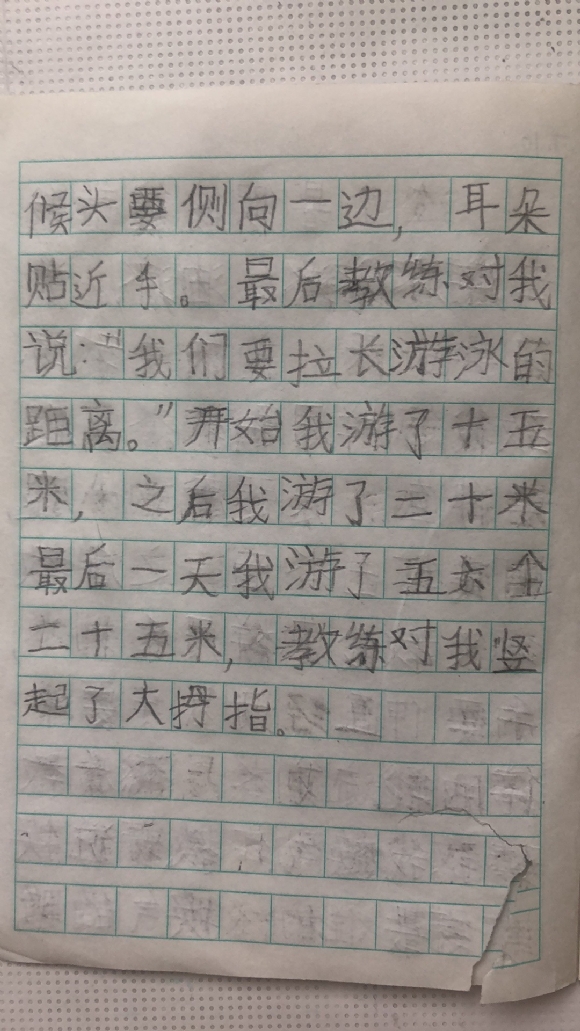 候头要侧向一边，耳朵
贴近手。最后教练对我
说：“我们要拉长游泳的
距离。”开始我游了十五
米，之后我游了二十米
最后一天我游了五六个
二十五米，教练对我竖
起了大拇指。